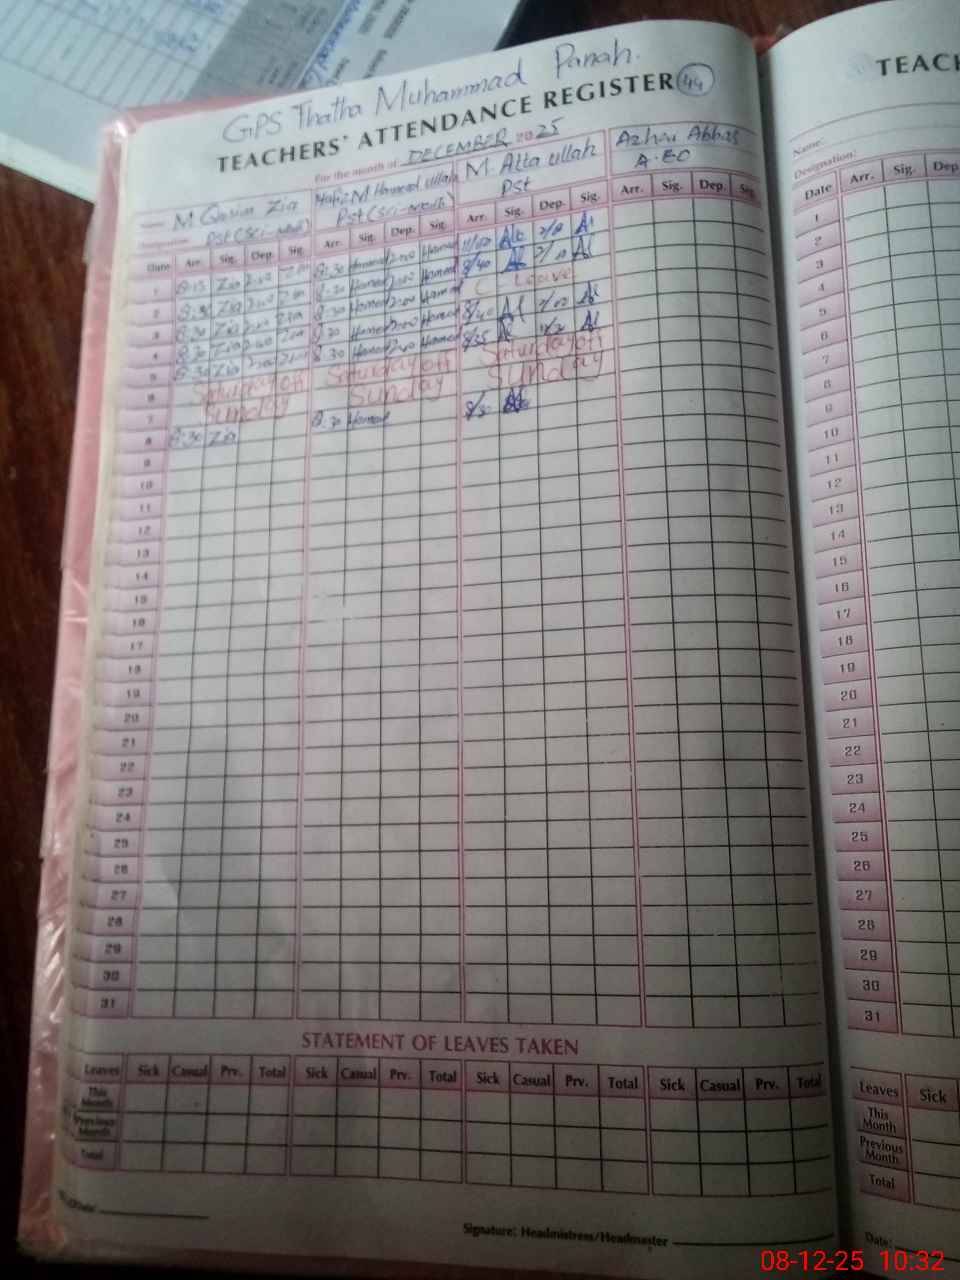 GPS Thatha Muhammad Panah.
TEACHERS' ATTENDANCE REGISTER 44
For the month of DECEMBER 2025
Name M Qasim Zia Hafiz M Hameed ullah M. Atta ullah Azhar Abbas
PST (Sci-Math) PST (Sci-Math) PST A.EO
Date Arr. Sig. Dep. Sig. Arr. Sig. Dep. Sig. Arr. Sig. Dep. Sig. Arr. Sig. Dep. Sig.
1 8:15 Zia 2:00 Zia 8:30 Hameed 2:00 Hameed
2 8:30 Zia 2:00 Zia 8:30 Hameed 2:00 Hameed 8/40
3 8:30 Zia 2:00 Zia 8:30 Hameed 2:00 Hameed C Leave
4 8:30 Zia 2:00 Zia 8:30 Hameed 2:00 Hameed 8/40
5 8:30 Zia 8:30 Hameed Hameed 8/35
6 Saturday off Saturday off Saturday off
7 Sunday Sunday Sunday
8 8:30 Zia 8:30 Hameed 8/30
9
10
11
12
13
14
15
16
17
18
19
20
21
22
23
24
25
26
27
28
29
30
31
STATEMENT OF LEAVES TAKEN
Leaves Sick Casual Prv. Total Sick Casual Prv. Total Sick Casual Prv. Total Sick Casual Prv. Total
This Month
Previous Month
Total
Signature: Headmistress/Headmaster
TEACH
Name:
Designation:
Date Arr. Sig. Dep
1
2
3
4
5
6
7
8
9
10
11
12
13
14
15
16
17
18
19
20
21
22
23
24
25
26
27
28
29
30
31
Leaves Sick
This Month
Previous Month
Total
Date:
08-12-25 10:32